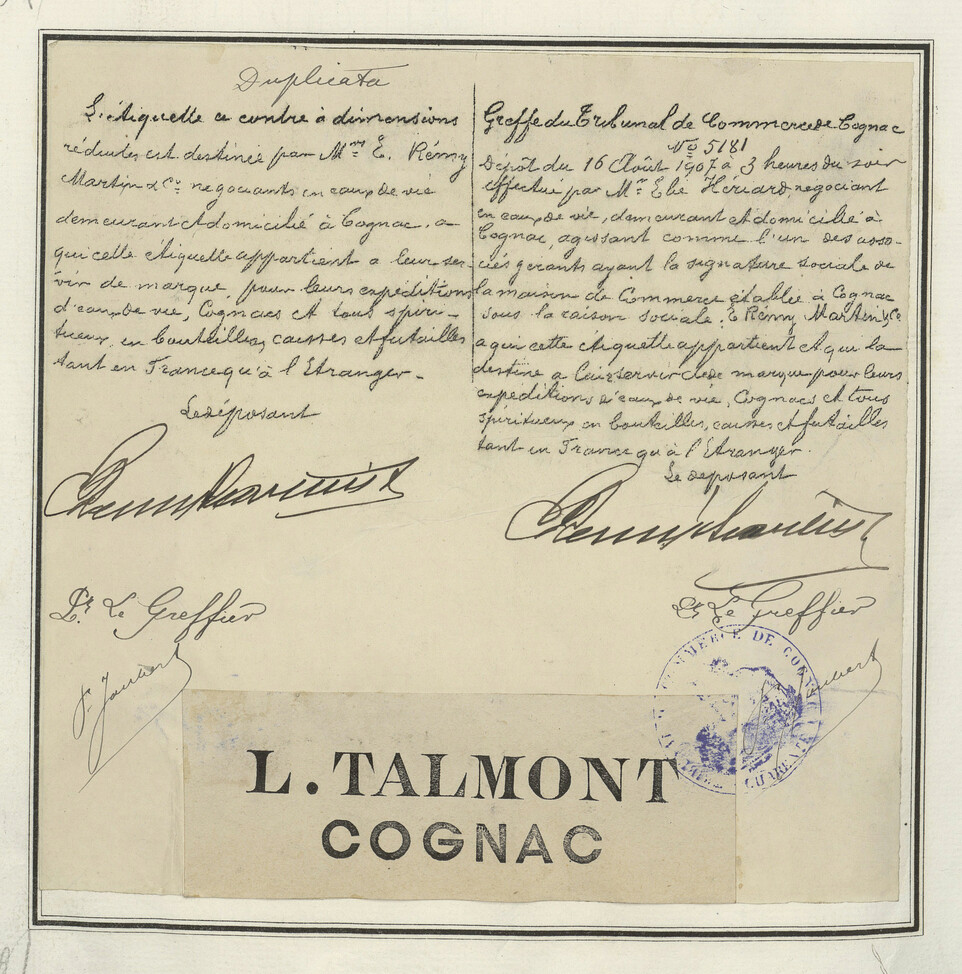 Duplicata
L'étiquette ci contre à dimensions
réduites est destinée par Mrs E. Rémy
Martin & Cie négociants en eaux de vie
demeurant et domicilié à Cognac, a
qui cette étiquette appartient a leur ser-
vir de marque, pour leurs expéditions
d'eaux de vie, Cognacs et tous spiri-
tueux, en bouteilles, caisses et futailles
tant en France qu'à l'Etranger.
Le déposant
Remy Martin & Co
Pr. Le Greffier
Greffe du Tribunal de Commerce de Cognac
No 5181
Dépôt du 16 Août 1907 à 3 heures du soir
effectué par Mr Elie Hériard, négociant
en eaux de vie, demeurant et domicilié à
Cognac, agissant comme l'un des asso-
ciés gérants ayant la signature sociale de
la maison de Commerce établie à Cognac
sous la raison sociale: E. Rémy Martin & Co
a qui cette étiquette appartient et qui la
destine a lui servir de marque pour leurs
expéditions d'eaux de vie, Cognacs et tous
spiritueux en bouteilles, caisses et futailles
tant en France qu'à l'Etranger.
Le déposant
Remy Martin & Co
Pr Le Greffier
COMMERCE DE COGNAC
CHARENTE
L. TALMONT
COGNAC